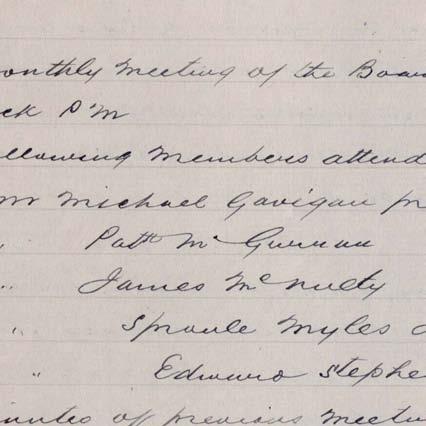 onthly Meeting of the Boar
ck P'M
llowing Members attend
Mr Michael Gavigan pr
" Patk Mc
" James McNulty
" Sproule Myles
" Edward Stephe
inutes of previous Meeti